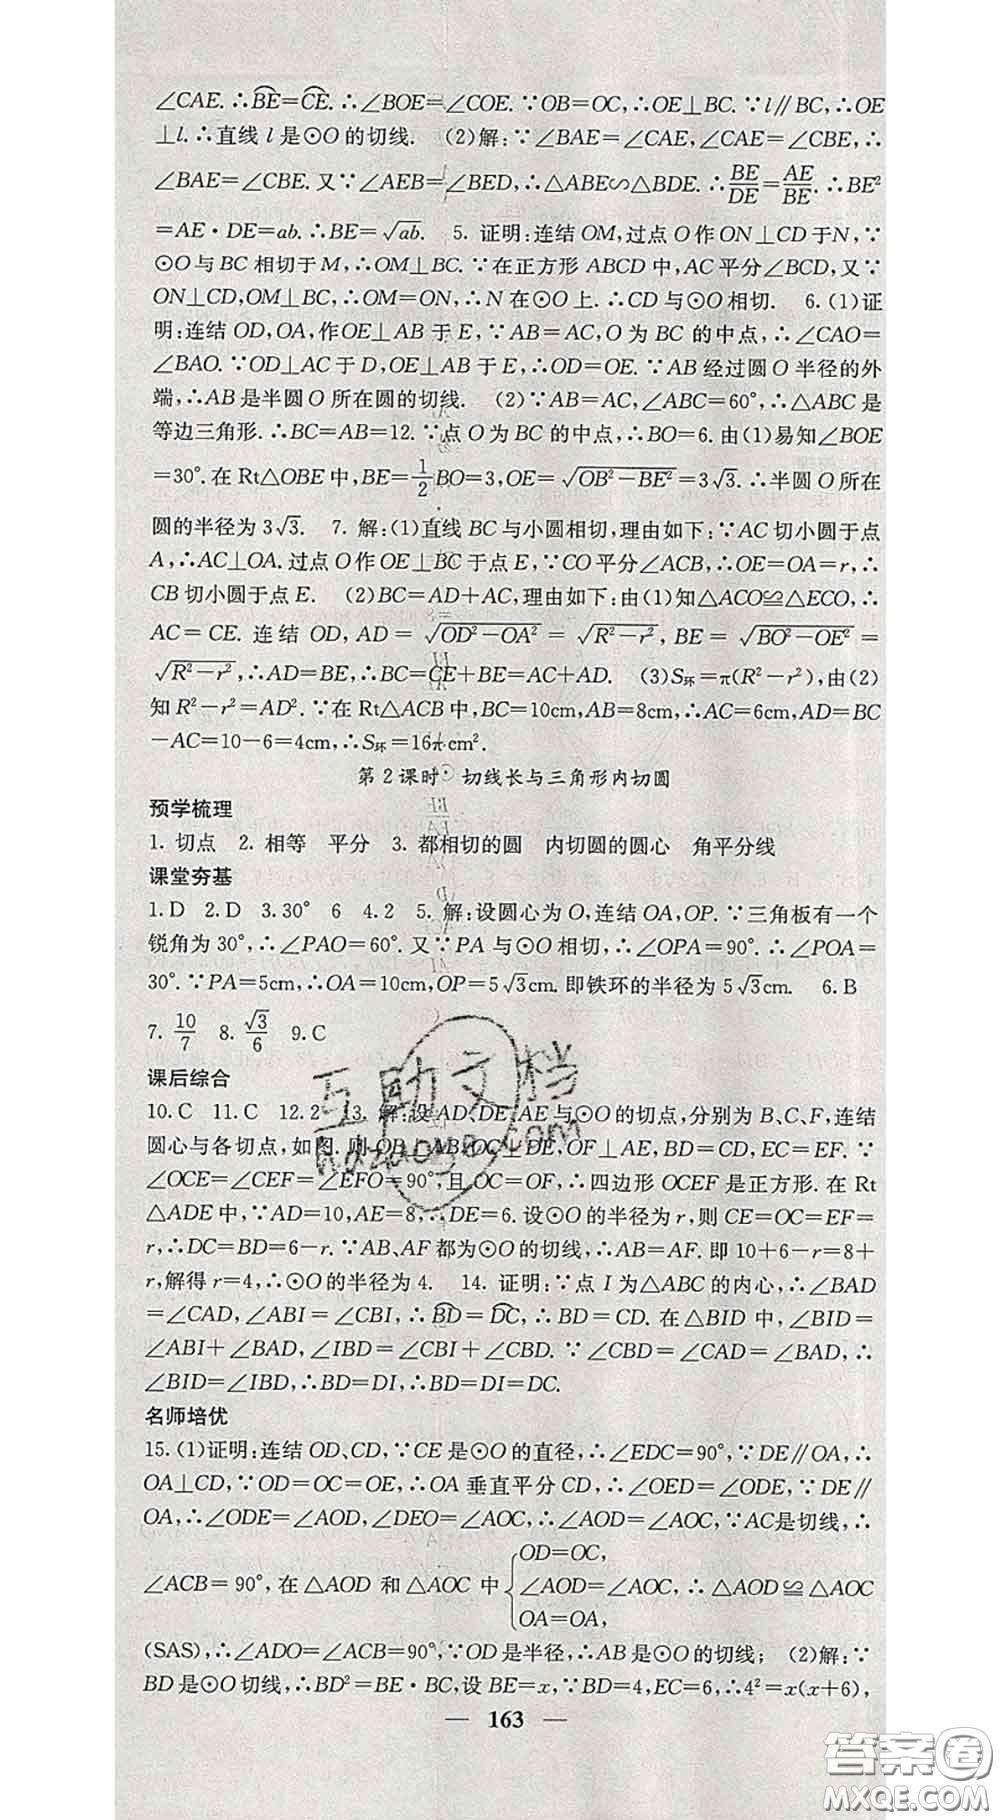 ∠CAE.∴BE=CE.∴∠BOE=∠COE.∵OB=OC,∴OE⊥BC.∵l∥BC,∴OE
⊥l.∴直线 l 是⊙O 的切线. (2)解:∵∠BAE=∠CAE,∠CAE=∠CBE,∴
∠BAE=∠CBE.又∵∠AEB=∠BED,∴△ABE∽△BDE.∴BE/DE=AE/BE.∴BE²
=AE·DE=ab.∴BE=√ab. 5. 证明:连结 OM,过点 O 作 ON⊥CD 于 N,∵
⊙O 与 BC 相切于 M,∴OM⊥BC.∵在正方形 ABCD 中,AC 平分∠BCD,又∵
ON⊥CD,OM⊥BC,∴OM=ON,∴N 在⊙O 上.∴CD 与⊙O 相切. 6.(1)证
明:连结 OD,OA,作OE⊥AB 于 E,∵AB=AC,O 为 BC 的中点,∴∠CAO=
∠BAO.∵OD⊥AC 于 D,OE⊥AB 于 E,∴OD=OE.∵AB 经过圆 O 半径的外
端,∴AB 是半圆 O 所在圆的切线. (2)∵AB=AC,∠ABC=60°,∴△ABC 是
等边三角形.∴BC=AB=12.∵点 O 为 BC 的中点,∴BO=6.由(1)易知∠BOE
=30°.在 Rt△OBE 中,BE=1/2BO=3,OE=√(OB²−BE²)=3√3.∴半圆 O 所在
圆的半径为 3√3. 7. 解:(1)直线 BC 与小圆相切,理由如下:∵AC 切小圆于点
A,∴AC⊥OA.过点 O 作 OE⊥BC 于点 E,∵CO 平分∠ACB,∴OE=OA=r,∴
CB 切小圆于点 E. (2)BC=AD+AC,理由如下:由(1)知△ACO≌△ECO,∴
AC=CE.连结 OD,AD=√(OD²−OA²)=√(R²−r²),BE=√(BO²−OE²)=
√(R²−r²),∴AD=BE,∴BC=CE+BE=AC+AD. (3)S环=π(R²−r²),由(2)
知 R²−r²=AD².∵在 Rt△ACB 中,BC=10cm,AB=8cm,∴AC=6cm,AD=BC
−AC=10−6=4cm,∴S环=16πcm².
第 2 课时 切线长与三角形内切圆
预学梳理
1. 切点 2. 相等 平分 3. 都相切的圆 内切圆的圆心 角平分线
课堂夯基
1.D 2.D 3.30° 6 4.2 5. 解:设圆心为 O,连结 OA,OP.∵三角板有一个
锐角为 30°,∴∠PAO=60°.又∵PA 与⊙O 相切,∴∠OPA=90°.∴∠POA=
30°.∵PA=5cm,∴OA=10cm,OP=5√3cm.即铁环的半径为 5√3cm. 6.B
7. 10/7 8. √3/6 9.C
课后综合
10.C 11.C 12.2 13. 解:设 AD、DE、AE 与⊙O 的切点,分别为 B、C、F,连结
圆心与各切点,如图,则OB⊥AB,OC⊥DE,OF⊥AE,BD=CD,EC=EF.∵
∠OCE=∠CEF=∠EFO=90°,且 OC=OF,∴四边形 OCEF 是正方形.在 Rt
△ADE 中,∵AD=10,AE=8,∴DE=6.设⊙O 的半径为 r,则 CE=OC=EF=
r,∴DC=BD=6−r.∵AB、AF 都为⊙O 的切线,∴AB=AF.即10+6−r=8+
r,解得 r=4,∴⊙O 的半径为 4. 14. 证明:∵点 I 为△ABC 的内心,∴∠BAD
=∠CAD,∠ABI=∠CBI,∴BD=DC,∴BD=CD.在△BID 中,∠BID=
∠ABI+∠BAD,∠IBD=∠CBI+∠CBD.∵∠CBD=∠CAD=∠BAD,∴
∠BID=∠IBD,∴BD=DI,∴BD=DI=DC.
名师培优
15.(1)证明:连结 OD、CD,∵CE 是⊙O 的直径,∴∠EDC=90°,∵DE∥OA,∴
OA⊥CD,∵OD=OC=OE,∴OA 垂直平分 CD,∴∠OED=∠ODE,∵DE∥
OA,∴∠ODE=∠AOD,∠DEO=∠AOC,∴∠AOD=∠AOC,∵AC是切线,∴
∠ACB=90°,在△AOD 和△AOC 中{OD=OC, ∠AOD=∠AOC, OA=OA,∴△AOD≌△AOC
(SAS),∴∠ADO=∠ACB=90°,∵OD 是半径,∴AB 是⊙O 的切线; (2)解:∵
BD 是⊙O 切线,∴BD²=BE·BC,设 BE=x,∵BD=4,EC=6,∴4²=x(x+6),
— 163 —
互助文档
hdzuoye.com
答案圈
MXQE.COM